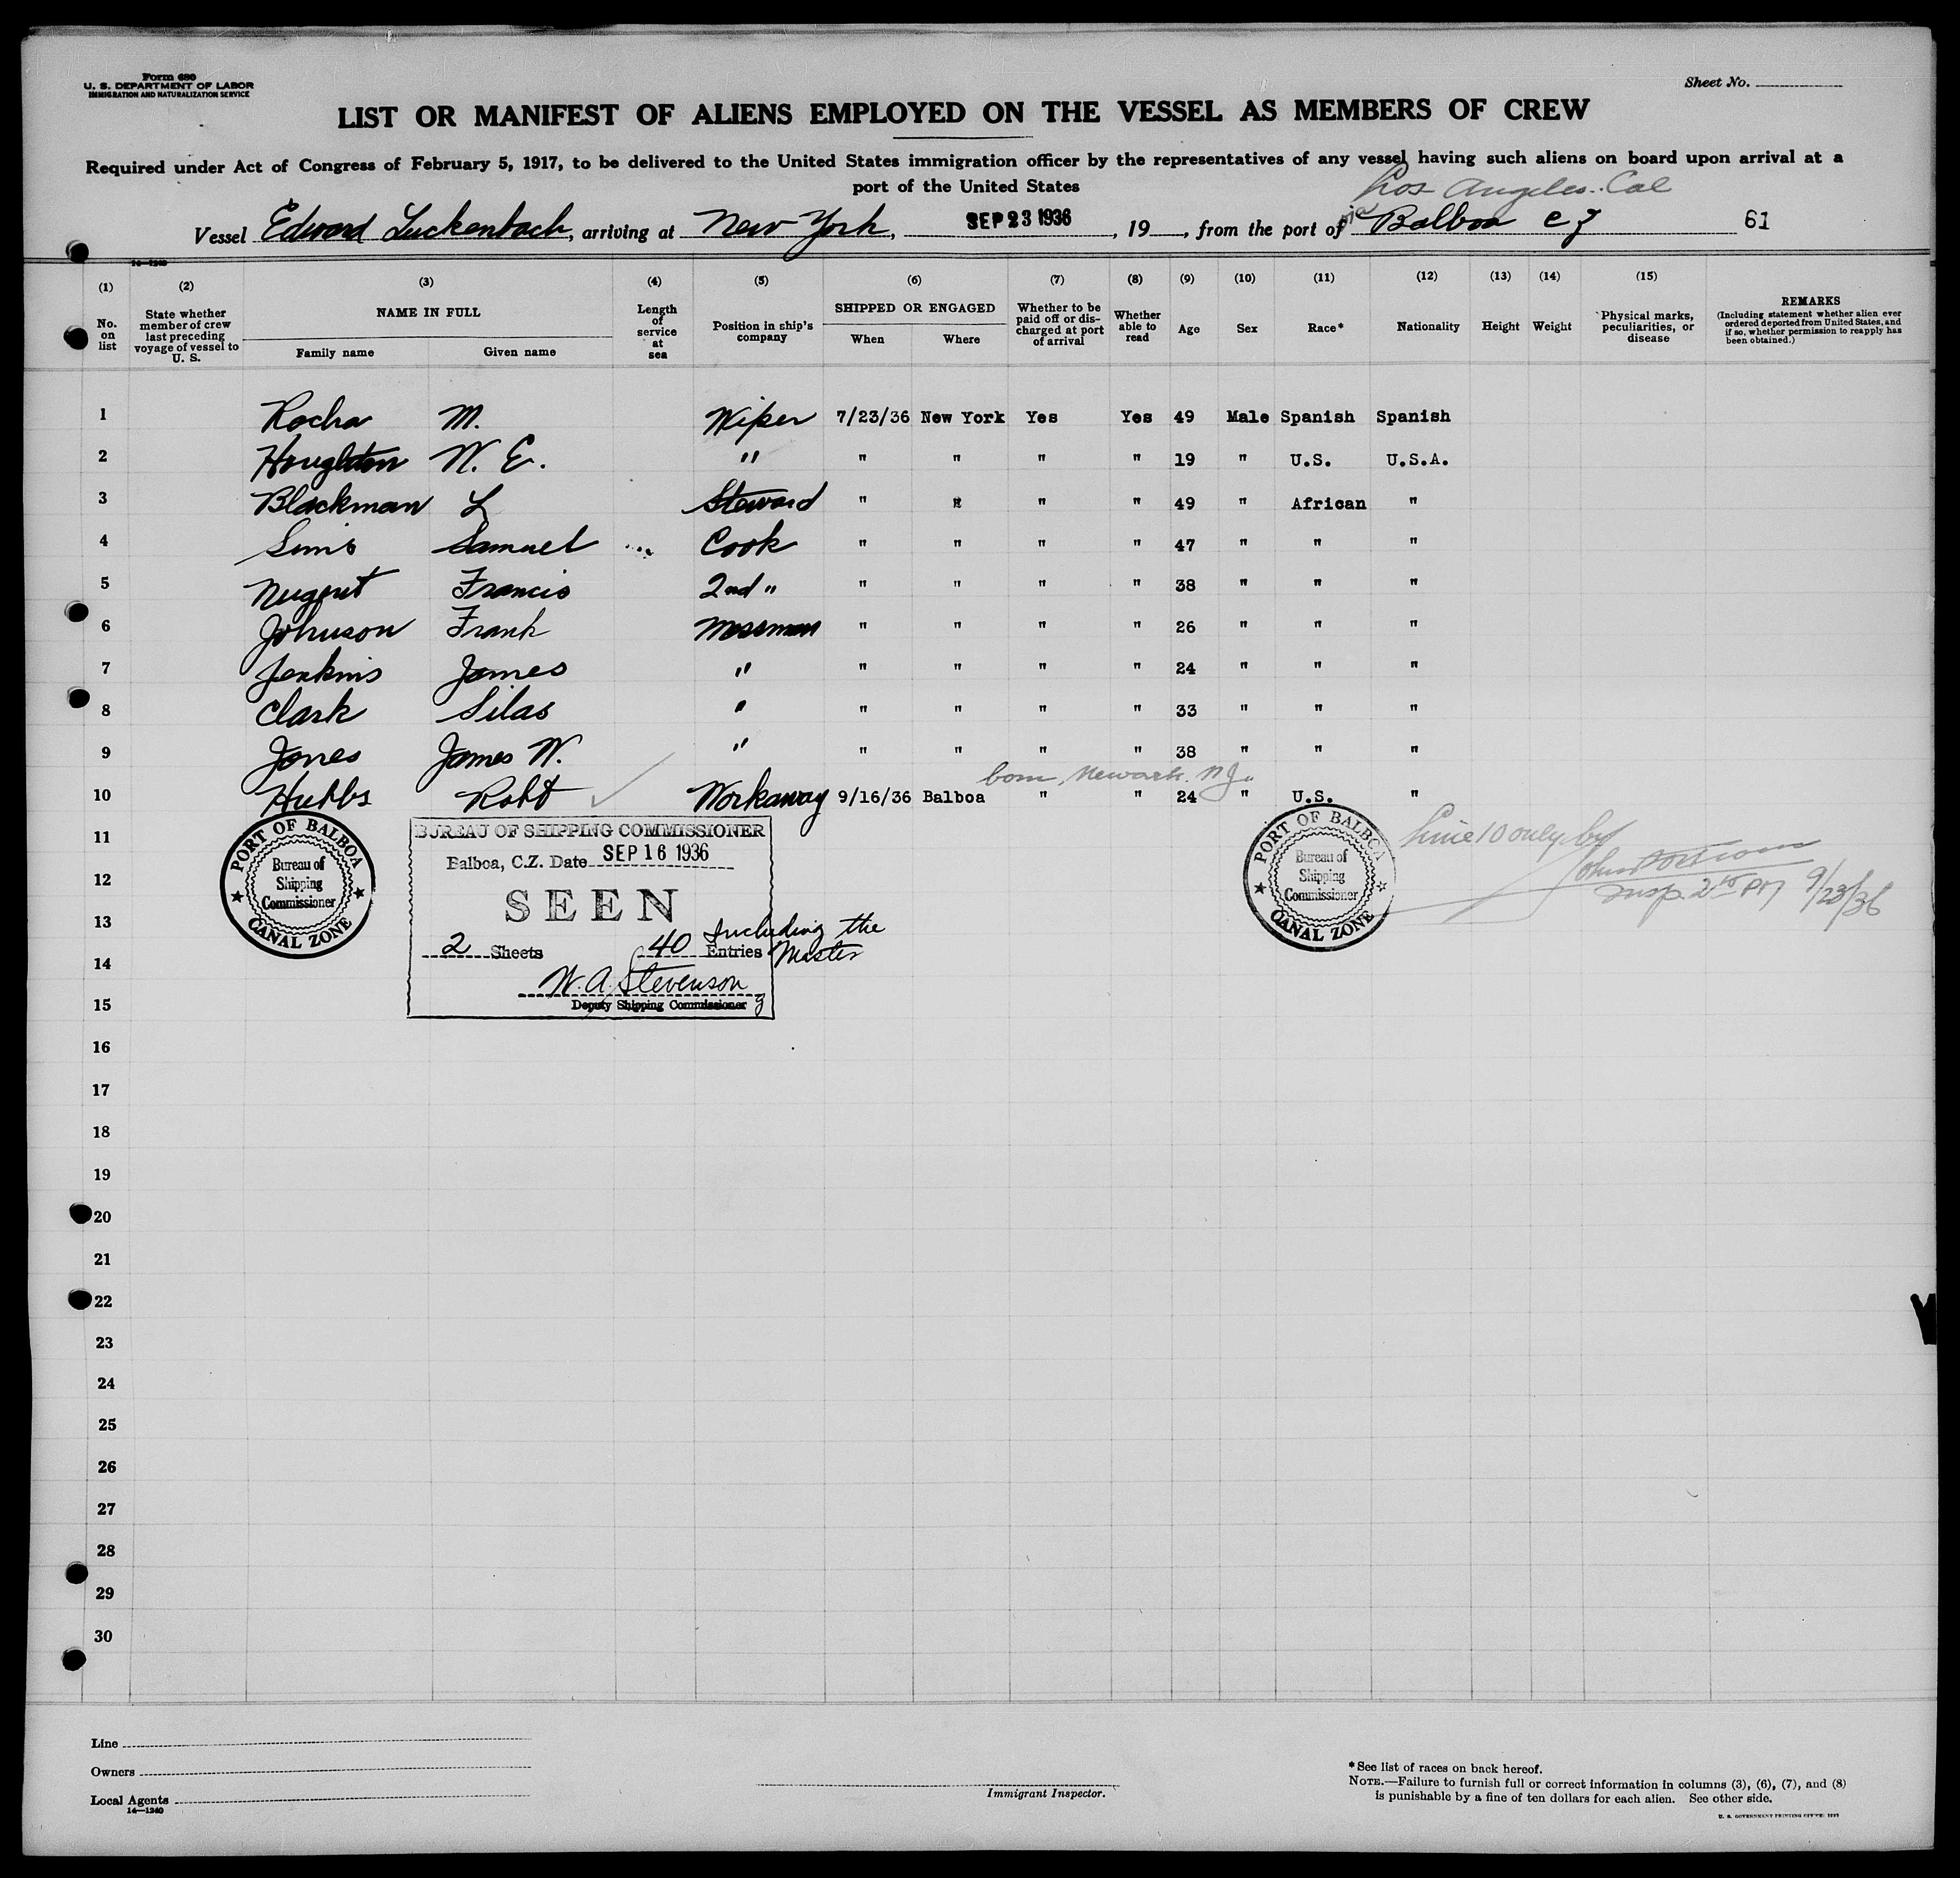 Form 680
U. S. DEPARTMENT OF LABOR
IMMIGRATION AND NATURALIZATION SERVICE
Sheet No.
LIST OR MANIFEST OF ALIENS EMPLOYED ON THE VESSEL AS MEMBERS OF CREW
Required under Act of Congress of February 5, 1917, to be delivered to the United States immigration officer by the representatives of any vessel having such aliens on board upon arrival at a
port of the United States
Los Angeles. Cal
Vessel Edward Luckenbach, arriving at New York, SEP 23 1936, 19, from the port of via Balboa C Z 61
14-1240
(1) (2) (3) (4) (5) (6) (7) (8) (9) (10) (11) (12) (13) (14) (15)
No. on list
State whether member of crew last preceding voyage of vessel to U. S.
NAME IN FULL
Family name Given name
Length of service at sea
Position in ship's company
SHIPPED OR ENGAGED
When Where
Whether to be paid off or discharged at port of arrival
Whether able to read
Age
Sex
Race*
Nationality
Height
Weight
Physical marks, peculiarities, or disease
REMARKS
(Including statement whether alien ever ordered deported from United States, and if so, whether permission to reapply has been obtained.)
1 Rocha M. Wiper 7/23/36 New York Yes Yes 49 Male Spanish Spanish
2 Houghton W. E. " " " " " 19 " U.S. U.S.A.
3 Blackman L Steward " " " " 49 " African "
4 Sims Samuel Cook " " " " 47 " " "
5 Nugent Francis 2nd " " " " " 38 " " "
6 Johnson Frank Messman " " " " 26 " " "
7 Jenkins James " " " " " 24 " " "
8 Clark Silas " " " " " 33 " " "
9 Jones James W. " " " " " 38 " " "
born, Newark. N.J.
10 Hubbs Robt Workaway 9/16/36 Balboa " " 24 " U.S. "
11
12
13
14
15
16
17
18
19
20
21
22
23
24
25
26
27
28
29
30
PORT OF BALBOA
Bureau of
Shipping
Commissioner
CANAL ZONE
BUREAU OF SHIPPING COMMISSIONER
Balboa, C.Z. Date SEP 16 1936
SEEN
2 Sheets 40 Entries Including the Master
W. A. Stevenson
Deputy Shipping Commissioner
PORT OF BALBOA
Bureau of
Shipping
Commissioner
CANAL ZONE
Line 10 only by
Insp. PM 9/23/36
Line
Owners
Local Agents
14-1240
Immigrant Inspector.
* See list of races on back hereof.
NOTE.—Failure to furnish full or correct information in columns (3), (6), (7), and (8)
is punishable by a fine of ten dollars for each alien. See other side.